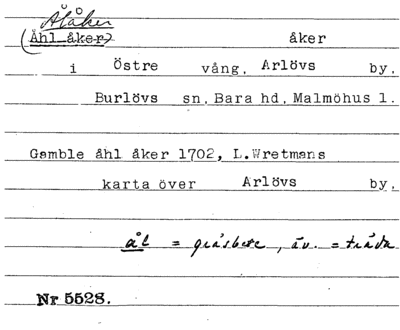 Ålåker
(Åhl åker) åker
i Östre vång, Arlövs by,
Burlövs sn, Bara hd, Malmöhus l.
Gamble åhl åker 1702, L.Wretmans
karta över Arlövs by,
ål = gräsbete, äv. = träda
Nr 5528.